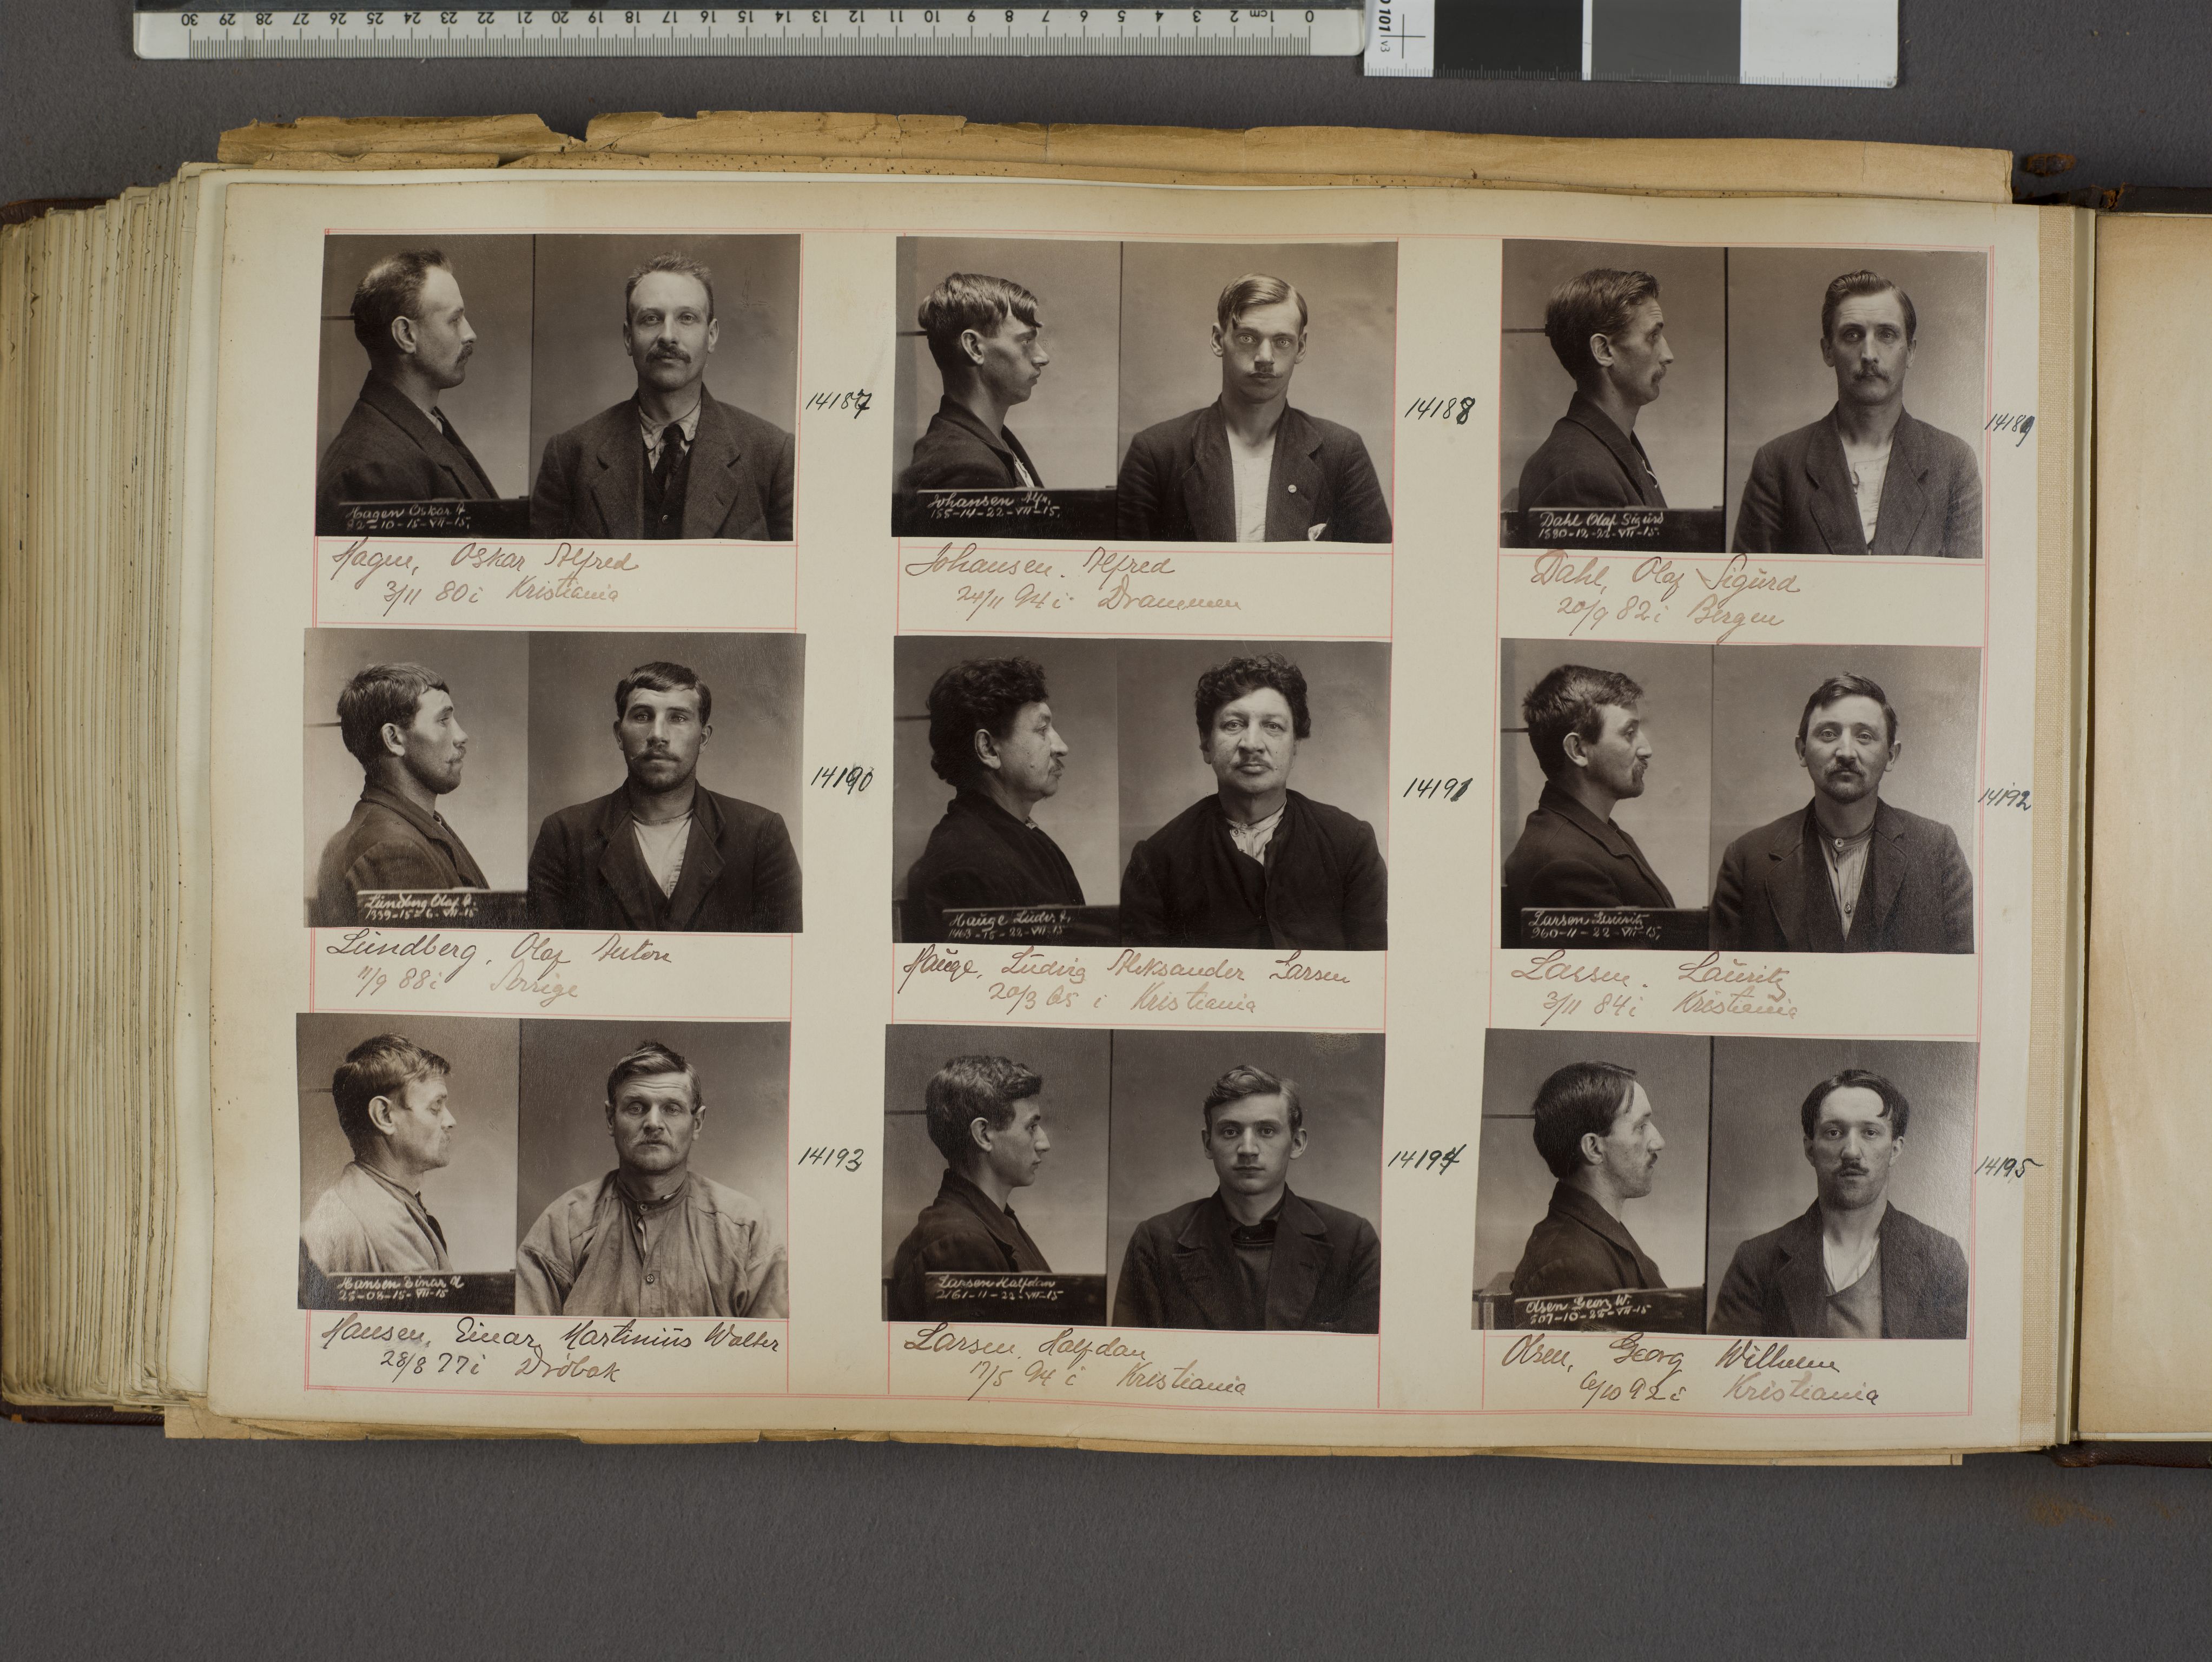 0 1cm 2 3 4 5 6 7 8 9 10 11 12 13 14 15 16 17 18 19 20 21 22 23 24 25 26 27 28 29 30
101 v3
Hagen Oskar A
82-10-15-VII-15.
14187
Hagen, Oskar Alfred
3/11 80 i Kristiania
Johansen Alfr.
155-14-22-VII-15.
14188
Johansen. Alfred
24/11 94 i Drammen
Dahl Olaf Sigurd
1580-12-22-VII-15.
14189
Dahl, Olaf Sigurd
20/9 82 i Bergen
Lundberg Olaf A.
1339-15-6-VII-15
14190
Lundberg, Olaf Anton
11/9 88 i Sverige
Hauge Ludv. A.
1463-15-22-VII-15
14191
Hauge, Ludvig Aleksander Larsen
20/3 65 i Kristiania
Larsen Lauritz
960-11-22-VII-15.
14192
Larsen. Lauritz
3/11 84 i Kristiania
Hansen Einar M
25-08-15-VII-15
14193
Hansen, Einar Martinius Walter
28/8 77 i Drøbak
Larsen Halfdan
2161-11-22-VII-15
14194
Larsen, Halfdan
17/5 94 i Kristiania
Olsen Georg W.
507-10-22-VII-15
14195
Olsen, Georg Wilhelm
6/10 92 i Kristiania